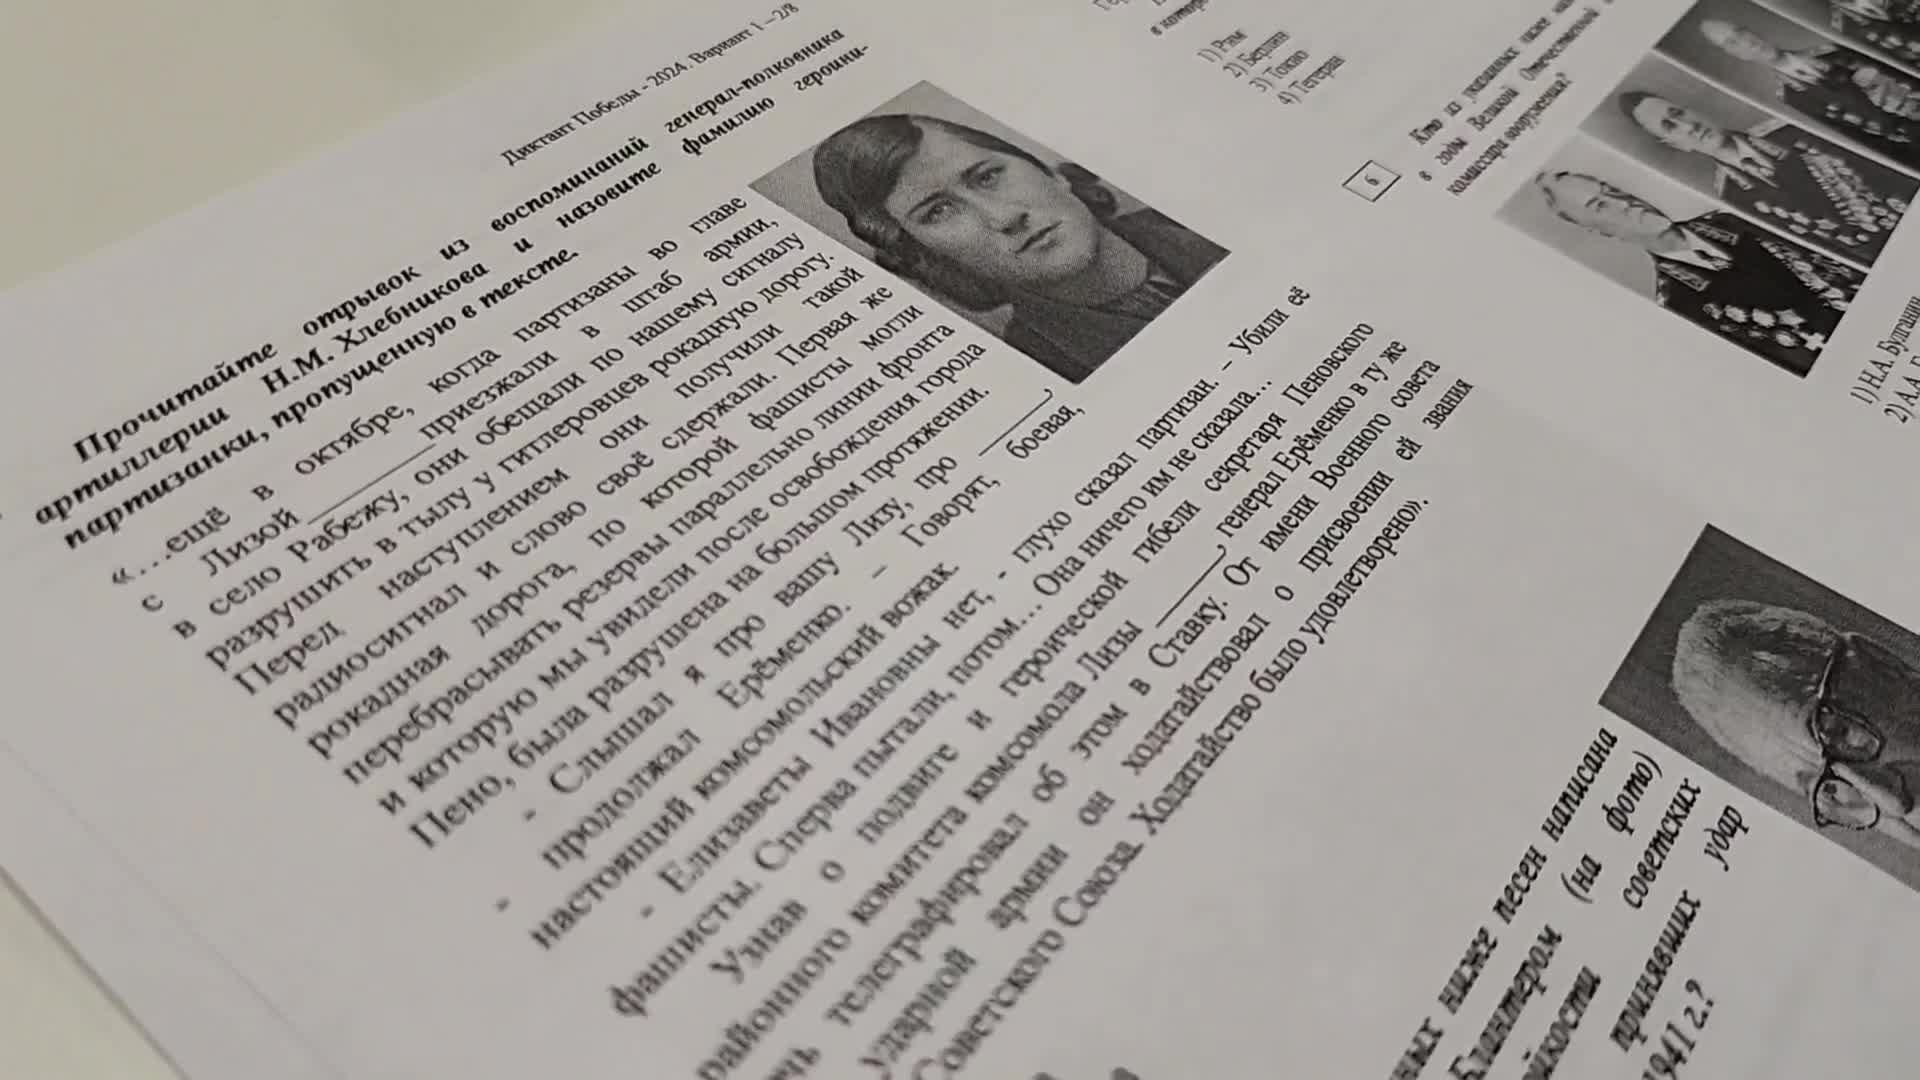 Диктант Победы - 2024. Вариант 1 – 2/8
Прочитайте отрывок из воспоминаний генерал-полковника
артиллерии Н.М. Хлебникова и назовите фамилию героини-
партизанки, пропущенную в тексте.
«…ещё в октябре, когда партизаны во главе
с Лизой приезжали в штаб армии,
в село Рабежу, они обещали по нашему сигналу
разрушить в тылу у гитлеровцев рокадную дорогу.
Перед наступлением они получили такой
радиосигнал и слово своё сдержали. Первая же
рокадная дорога, по которой фашисты могли
перебрасывать резервы параллельно линии фронта
и которую мы увидели после освобождения города
Пено, была разрушена на большом протяжении.
- Слышал я про вашу Лизу, про ,
- продолжал Ерёменко. – Говорят, боевая,
настоящий комсомольский вожак.
- Елизаветы Ивановны нет, - глухо сказал партизан. – Убили её
фашисты. Сперва пытали, потом… Она ничего им не сказала…
Узнав о подвиге и героической гибели секретаря Пеновского
районного комитета комсомола Лизы , генерал Ерёменко в ту же
телеграфировал об этом в Ставку. От имени Военного совета
ударной армии он ходатайствовал о присвоении ей звания
Советского Союза. Ходатайство было удовлетворено».
1) Рим
2) Берлин
3) Токио
4) Тегеран
6
Кто из указанных ниже
в годы Великой Отечественной
комиссара вооружения?
1) Н.А. Булганин
2) А.А.
ниже песен написана
Блантером (на фото)
советских
принявших удар
1941 г.?